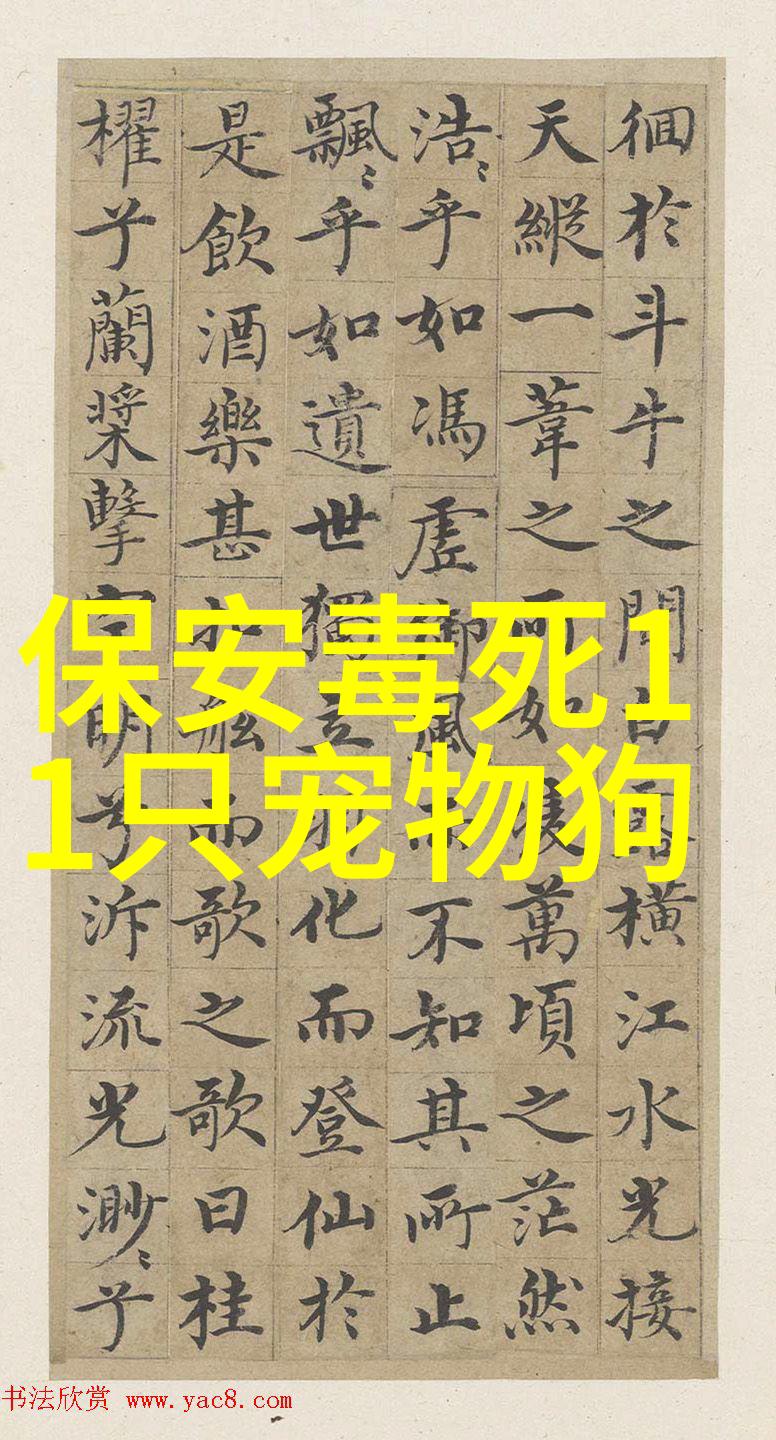 徊於斗牛之間白露橫江水光接
天縱一葦之所如淩萬頃之茫然
浩〻乎如馮虛御風而不知其所止
飄〻乎如遺世獨立羽化而登仙於
是飲酒樂甚扣舷而歌之歌曰桂
櫂兮蘭槳擊空明兮泝流光渺〻兮
保安毒死1
1只宠物狗
书法欣赏 www.yac8.com